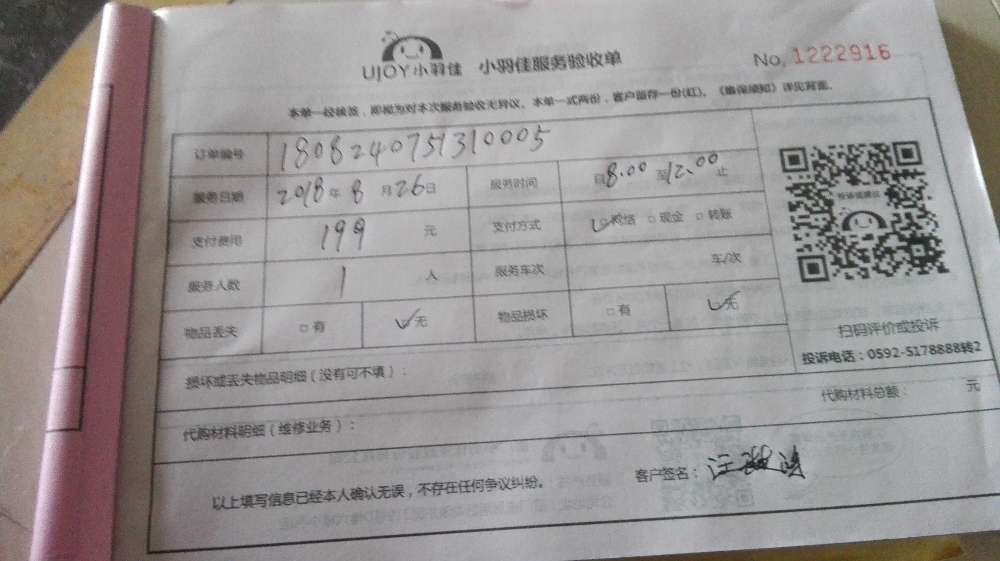 UJOY小羽佳 小羽佳服务验收单 No. 1222916
本单一经核签，即视为对本次服务验收无异议。本单一式两份，客户留存一份(红)。《维保须知》详见背面。
订单编号 1808240751310005
服务日期 2018年8月26日 服务时间 自8.00至12.00止
支付费用 199 元 支付方式 ☑网络 □现金 □转账
服务人数 1 人 服务车次 车/次
物品丢失 □有 ☑无 物品损坏 □有 ☑无
投诉或建议
扫码评价或投诉
投诉电话：0592-5178888转2
损坏或丢失物品明细（没有可不填）：
代购材料明细（维修业务）： 代购材料总额： 元
以上填写信息已经本人确认无误，不存在任何争议纠纷。 客户签名：汪